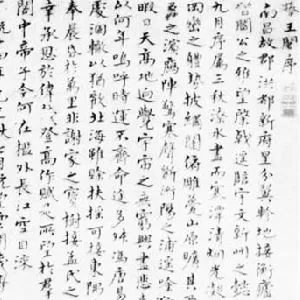 滕王閣序
南昌故郡洪都新府星分翼軫地接衡
督閻公之雅望棨戟遙臨宇文新州之懿
九月序屬三秋潦水盡而寒潭清
巒之體勢披繡闥俯雕甍山原曠其
蠡之濱雁陣驚寒聲斷衡陽之浦遙
暇日天高地迥覺宇宙之無窮興盡悲
以何年嗚呼時運不齊命途多舛馮唐
處涸轍以猶歡北海雖賒扶搖可接東隅
奉晨昏於萬里非謝家之寶樹接孟氏之
幸承恩於偉餞登高作賦是所望於群
閣中帝子今何在檻外長江空自流